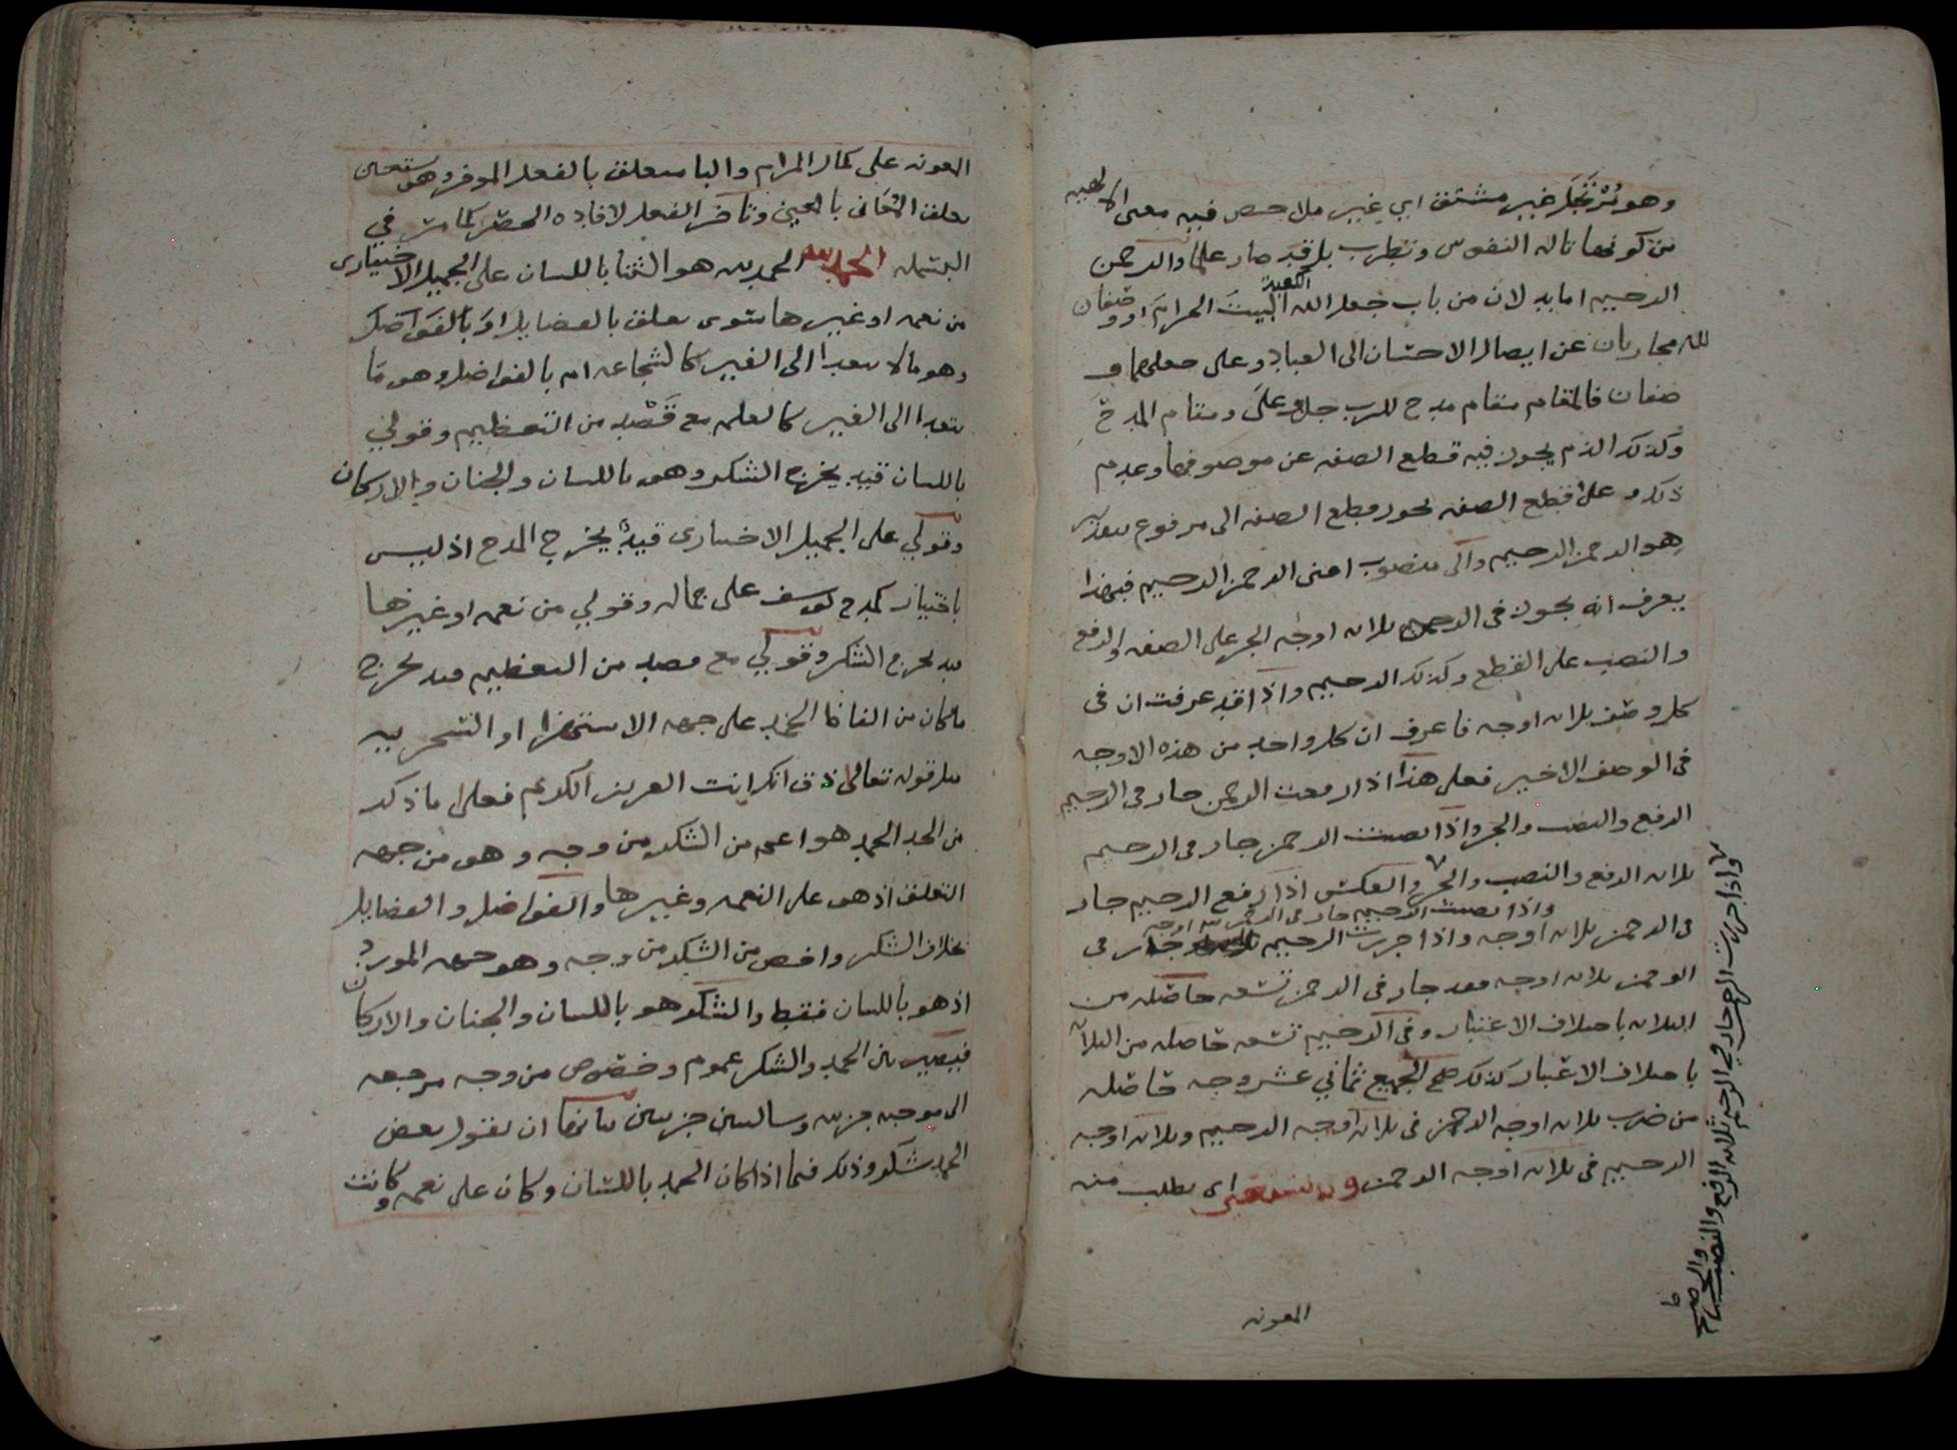 وهو مرتجل غير مشتق اي غير ملاحص فيه معنى الالهيه
من كونها تاله النفوس وتطرب بل قد صار علما والرحمن
الرحيم اما بدلان من باب جعل الله الكعبة البيت الحرام او وصفان
لله مجازيان عن ايصال الاحسان الى العباد وعلى جعلهما و
صفان فالمقام مقام مدح للرب جل وعلى ومقام المدح
وكذلك الذم يجوز فيه قطع الصفه عن موصوفها وعدم
ذلك وعلى قطع الصفه يجوز قطع الصفه الى مرفوع بتقدير
هو الرحمن الرحيم والى منصوب اعنى الرحمن الرحيم فبهذا
يعرف انه يجوز فى الرحمن ثلاثه اوجه الجر على الصفه والرفع
والنصب على القطع وكذلك الرحيم واذا قد عرفت ان فى
كل وصف ثلاثه اوجه فاعرف ان كل واحد من هذه الاوجه
فى الوصف الاخير فعلى هذا اذا رفعت الرحمن جاز فى الرحيم
الرفع والنصب والجر واذا نصبت الرحمن جاز فى الرحيم
ثلاثه الرفع والنصب والجر والعكس اذا رفع الرحيم جاز
واذا نصبت الرحيم جاز فى الرحمن ثلاثه اوجه
فى الرحمن ثلاثه اوجه واذا جررت الرحيم جاز فى
الرحمن ثلاثه اوجه فعد جاز فى الرحمن تسعه حاصله من
الثلاثه باختلاف الاعتبار وفى الرحيم تسعه حاصله من الثلاثه
باختلاف الاعتبار كذلك صح الجميع ثماني عشر وجه حاصله
من ضرب ثلاثه اوجه الرحمن فى ثلاثه اوجه الرحيم وثلاثه اوجه
الرحيم فى ثلاثه اوجه الرحمن وبه نستعين اى نطلب منه
المعونه
واذا جررت الرحمن جاز في الرحيم ثلاثه الرفع والنصب والجر صح
المعونه على كمال المرام والبا متعلق بالفعل الموخر وهو نستعين
تعلق الثاني بالعين وتاخر الفعل لافاده الحصر كما مر في
البسمله الحمد لله الحمد لله هو الثنا باللسان على الجميل الاختيارى
من نعمه او غيرها سوى تعلق بالفضايل او بالفواضل
وهو مالا يتعدا الى الغير كالشجاعه ام بالفواضل وهو ما
يتعدا الى الغير كالعلم مع قصد من التعظيم وقولي
باللسان قيد يخرج الشكر وهو باللسان والجنان والاركان
وقولي على الجميل الاختيارى قيد يخرج المدح اذ ليس
باختيار كمدح يوسف على جماله وقولي من نعمه او غيرها
قيد يخرج الشكر وقولي مع قصد من التعظيم قيد يخرج
ما كان من الفاظ الحمد على جهه الاستهزا او السخريه
مثل قوله تعالى ذق انك انت العزيز الكريم فعلى ما ذكر
من الحد الحمد هو اعم من الشكر من وجه وهو من جهه
التعلق اذ هو على النعمه وغيرها والفواضل والفضايل
بخلاف الشكر واخص من الشكر من وجه وهو جهه المورد
اذ هو باللسان فقط والشكر هو باللسان والجنان والاركان
فيصير بين الحمد والشكر عموم وخصوص من وجه مرجعه
الى موجبه جزييه وسالبتين جزييتين بيانها ان نقول بعض
الحمد شكر وذلك فيما اذا كان الحمد باللسان وكان على نعمه وكانت